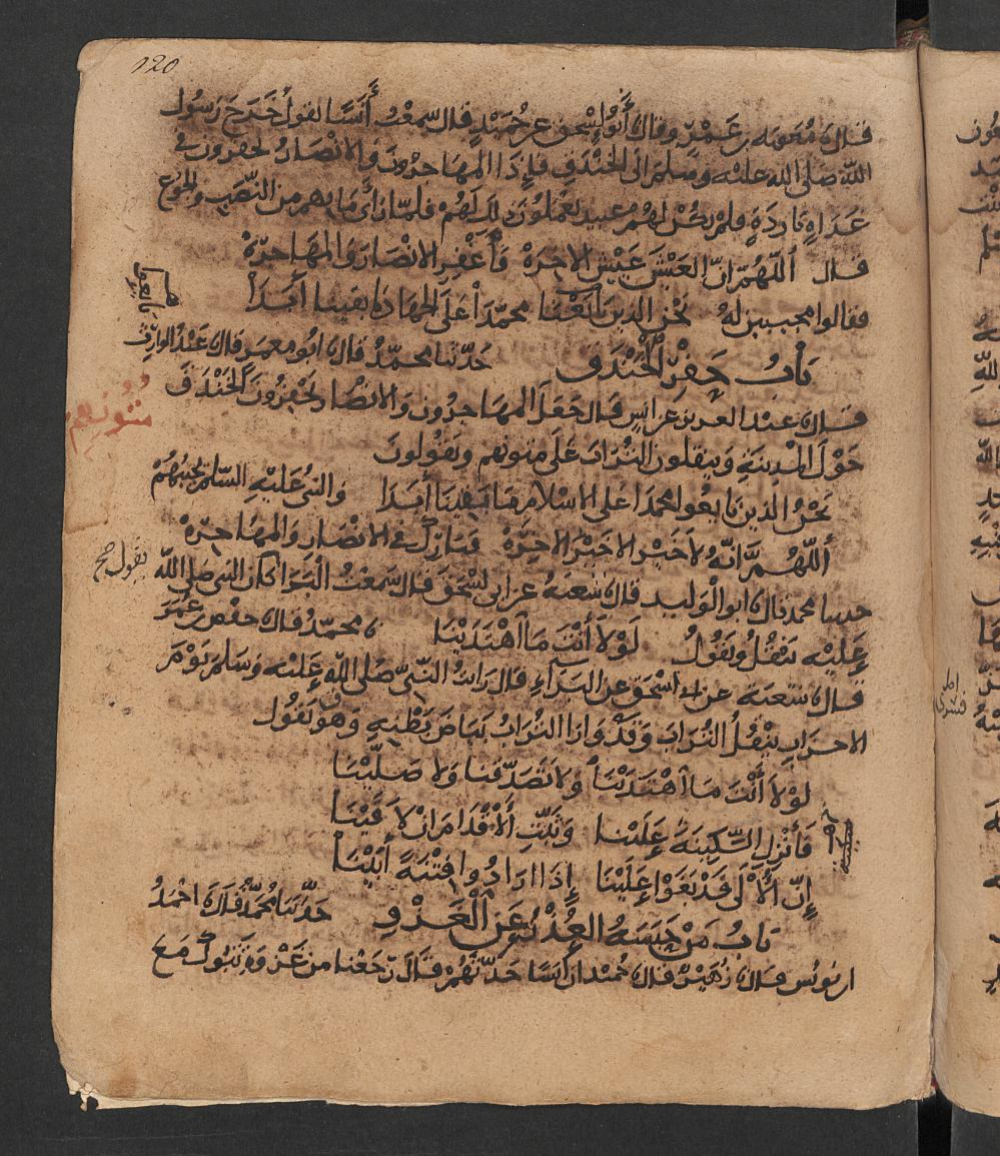 120
قال نا معوية بن عمرو قال نا أبو إسحق عن حميد قال سمعت أنسا يقول خرج رسول
الله صلى الله عليه وسلم الى الخندق فإذا المهاجرون والانصار يحفرون في
غداة باردة فلم يكن لهم عبيد يعملون ذلك لهم فلما رأى ما بهم من النصب والجوع
قال اللهم ان العيش عيش الاخرة فاغفر الانصار والمهاجرة
فقالوا مجيبين له نحن الذين بايعنا محمدا على الجهاد ما بقينا أبدا
باب حفر الخندق حدثنا محمد قال نا ابو معمر قال نا عبد الوارث
قال نا عبد العزيز عن انس قال جعل المهاجرون والانصار يحفرون الخندق
حول المدينة وينقلون التراب على متونهم ويقولون
متونهم
نحن الذين بايعوا محمدا على الاسلام ما بقينا أبدا والنبي عليه السلم يجيبهم
أللهم انه لا خير الا خير الاخرة فبارك في الانصار والمهاجرة
حدثنا محمد قال نا ابو الوليد قال نا شعبة عن ابي اسحق قال سمعت البرا كان النبي صلى الله
يقول صح
عليه ينقل ويقول لولا أنت ما اهتدينا نا محمد قال نا حفص بن عمر
قال نا شعبة عن ابي اسحق عن البراء قال رايت النبي صلى الله عليه وسلم يوم
الاحزاب ينقل التراب وقد وارا التراب بياض بطنه وهو يقول
لولا أنت ما اهتدينا ولا تصدقنا ولا صلينا
فأنزل السكينة علينا وثبت ألاقدام ان لاقينا
إن الألى قد بغوا علينا إذا ارادوا فتنة أبينا
باب من حبسه العذر عن الغزو حدثنا محمد قال نا احمد
ابن يونس قال نا زهير قال نا حميد ان أنسا حدثهم قال رجعنا من غزوة تبوك مع